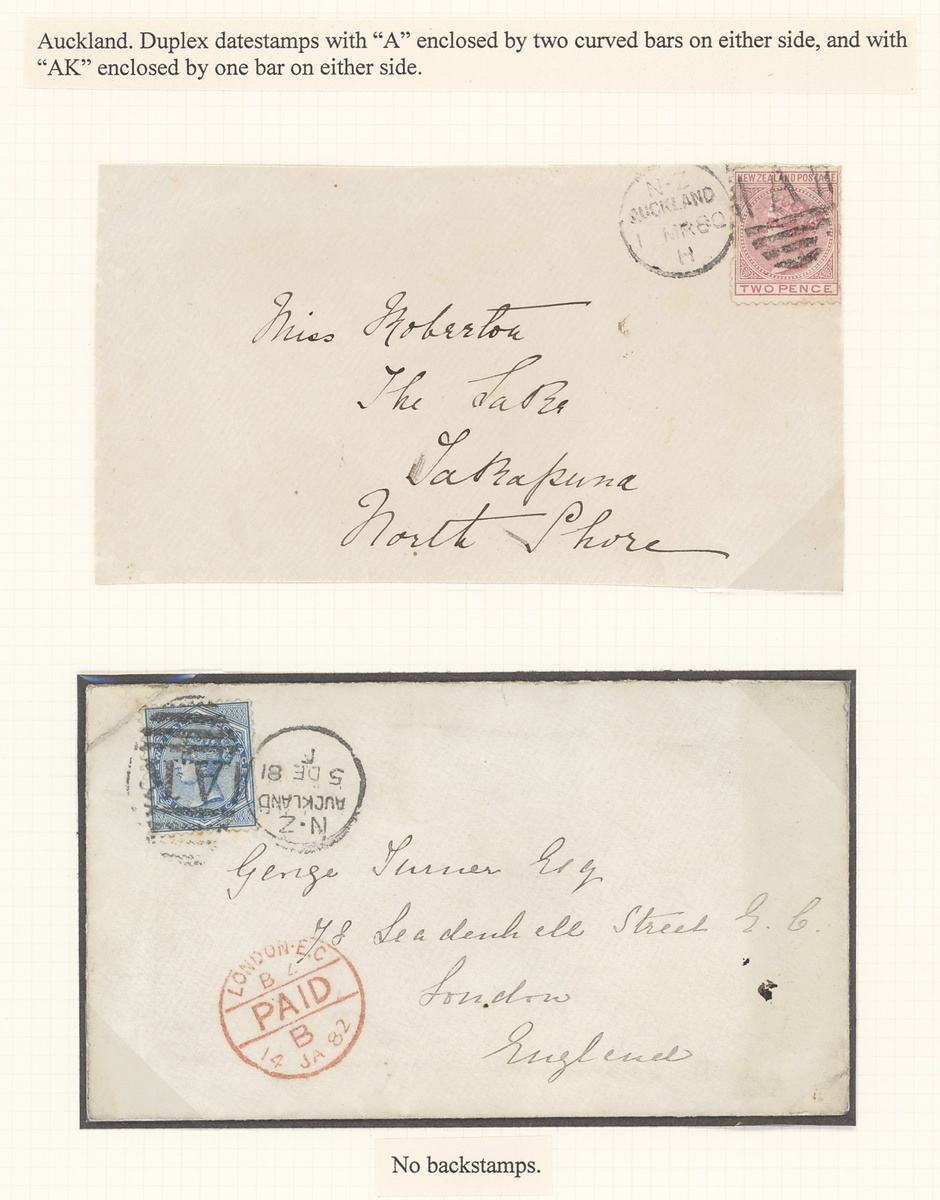 Auckland. Duplex datestamps with “A” enclosed by two curved bars on either side, and with
“AK” enclosed by one bar on either side.
N·Z
AUCKLAND
1 MR 80
H
NEW ZEALAND POSTAGE
TWO PENCE
Miss Roberton
The Lake
Takapuna
North Shore
N·Z
AUCKLAND
5 DE 81
George Turner Esq
78 Leadenhall Street E. C.
London
England
LONDON·E.C
B
PAID
B
14 JA 82
No backstamps.